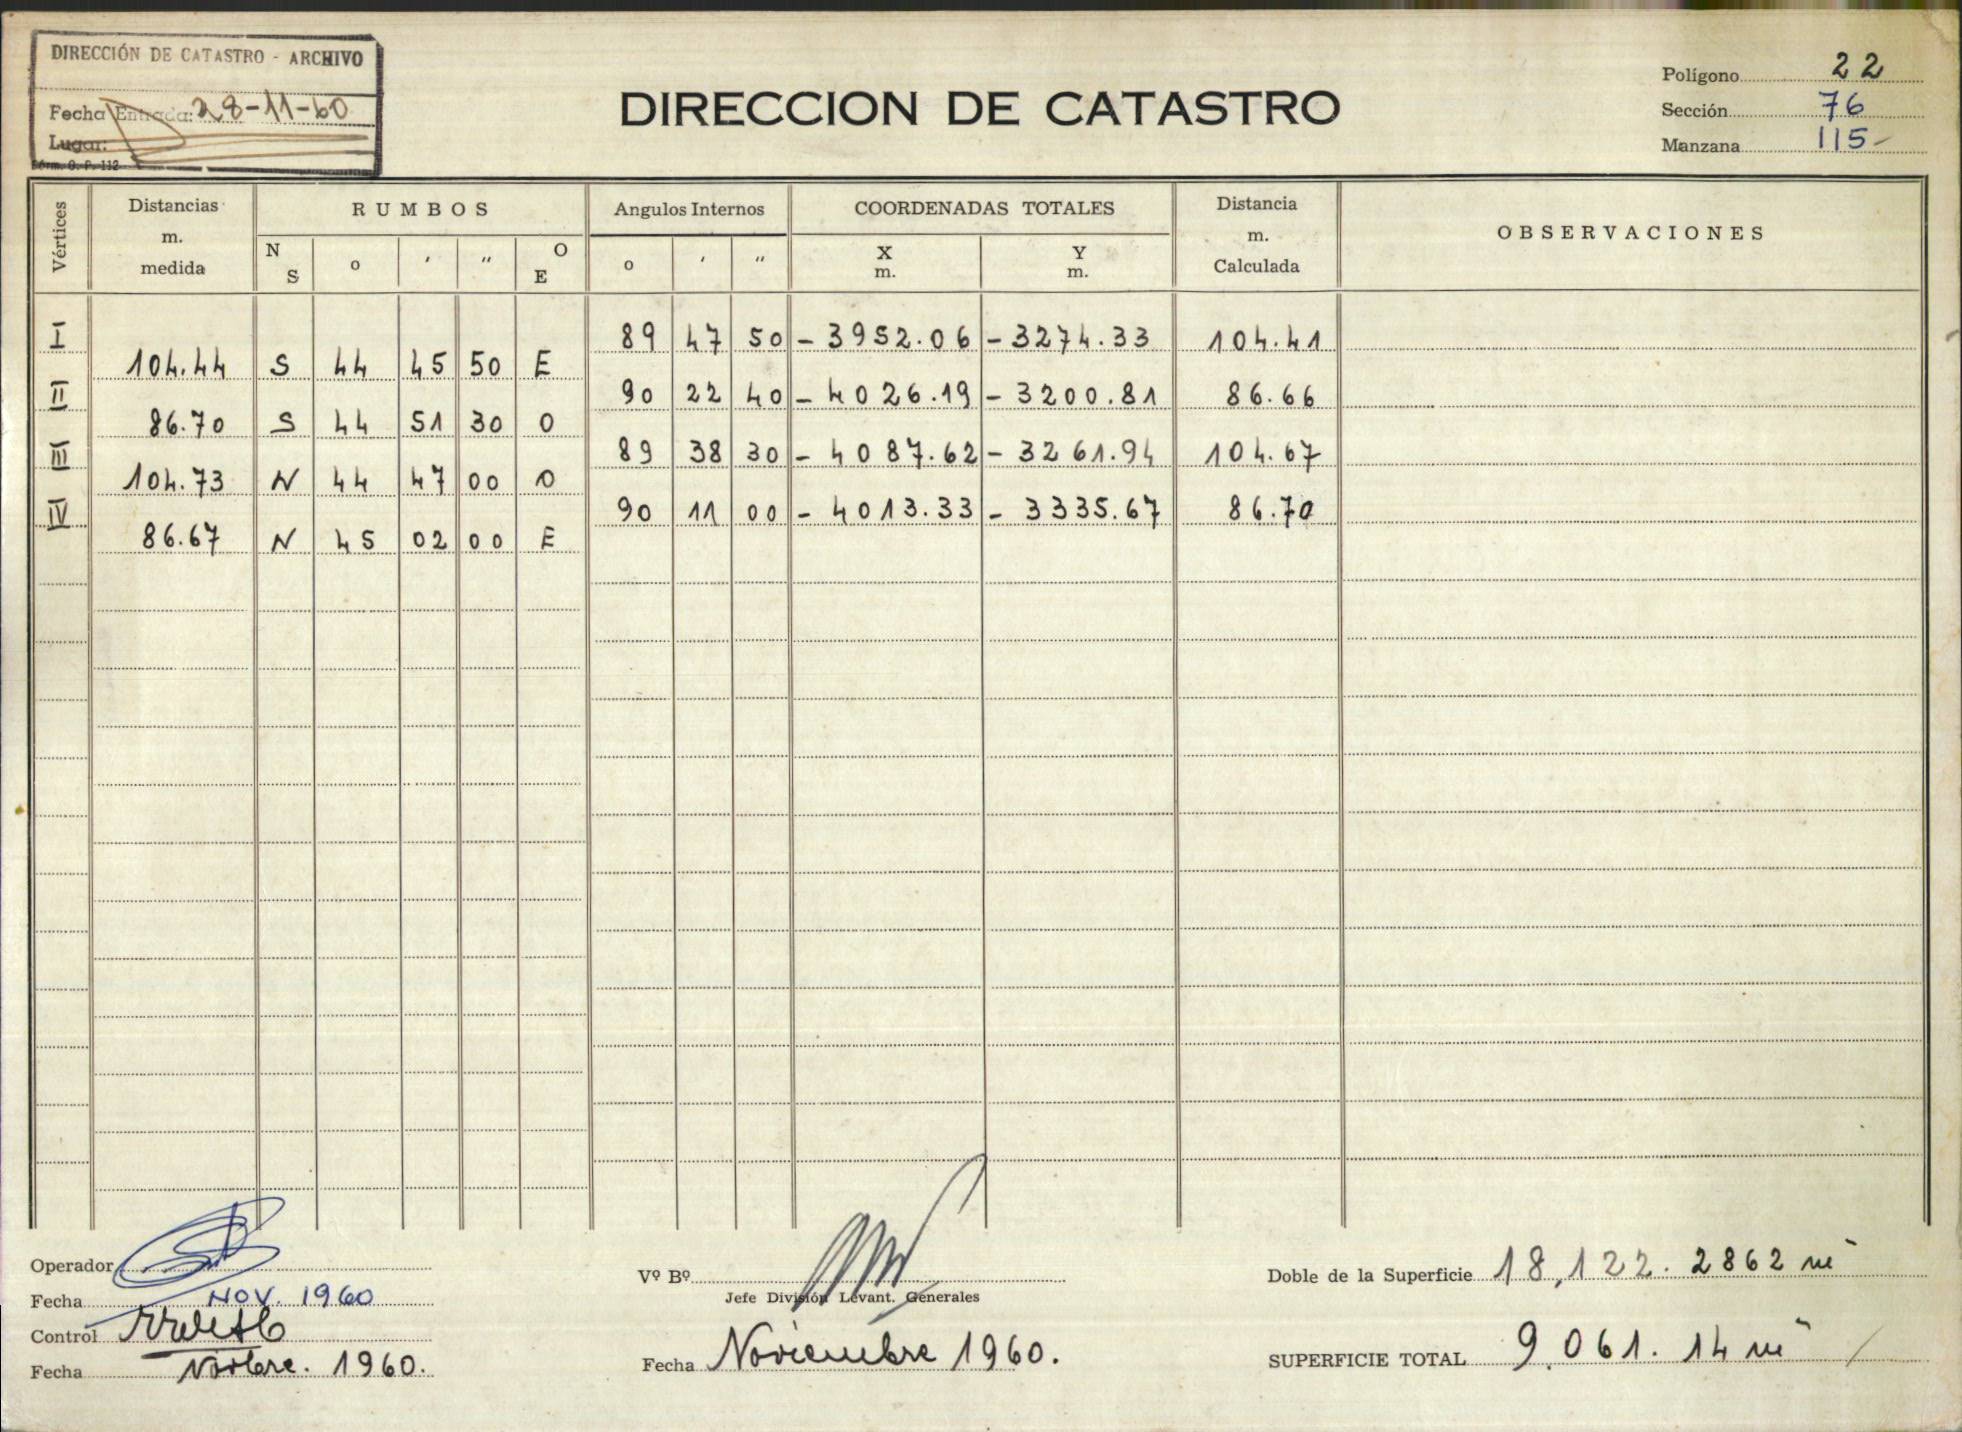 DIRECCIÓN DE CATASTRO - ARCHIVO
Fecha Entrada: 28-11-60
Lugar:
Form. O. P. 112
DIRECCION DE CATASTRO
Polígono 22
Sección 76
Manzana 115-
Vértices
Distancias m. medida
RUMBOS
Angulos Internos
COORDENADAS TOTALES
Distancia m. Calculada
OBSERVACIONES
N S o ' " O E
o ' "
X m. Y m.
I 89 47 50 - 3952.06 - 3274.33 104.41
104.44 S 44 45 50 E
II 90 22 40 - 4026.19 - 3200.81 86.66
86.70 S 44 51 30 O
III 89 38 30 - 4087.62 - 3261.94 104.67
104.73 N 44 47 00 O
IV 90 11 00 - 4013.33 - 3335.67 86.70
86.67 N 45 02 00 E
Operador
Fecha NOV. 1960
Control
Fecha Novbre. 1960.
Vº Bº
Jefe División Levant. Generales
Fecha Noviembre 1960.
Doble de la Superficie 18,122.2862 m²
SUPERFICIE TOTAL 9.061.14 m²